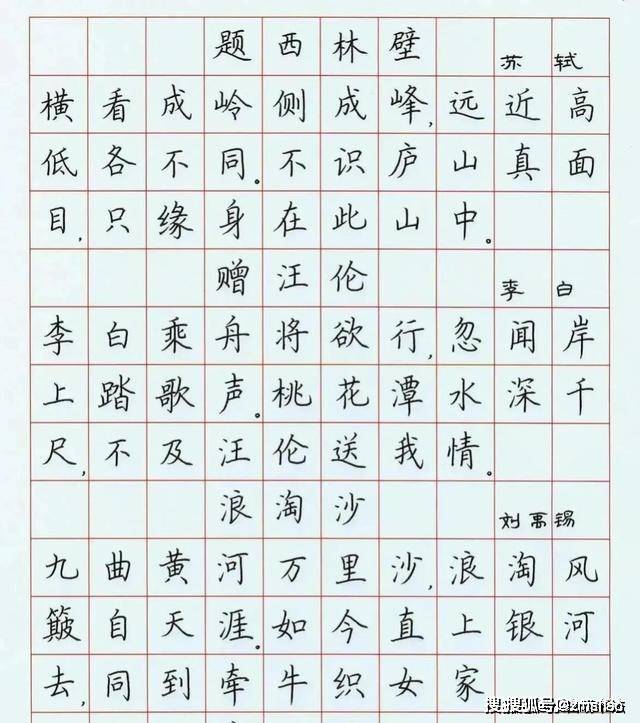 题西林壁 苏轼
横看成岭侧成峰,远近高
低各不同。不识庐山真面
目,只缘身在此山中。
赠汪伦 李白
李白乘舟将欲行,忽闻岸
上踏歌声。桃花潭水深千
尺,不及汪伦送我情。
浪淘沙 刘禹锡
九曲黄河万里沙,浪淘风
簸自天涯。如今直上银河
去,同到牵牛织女家